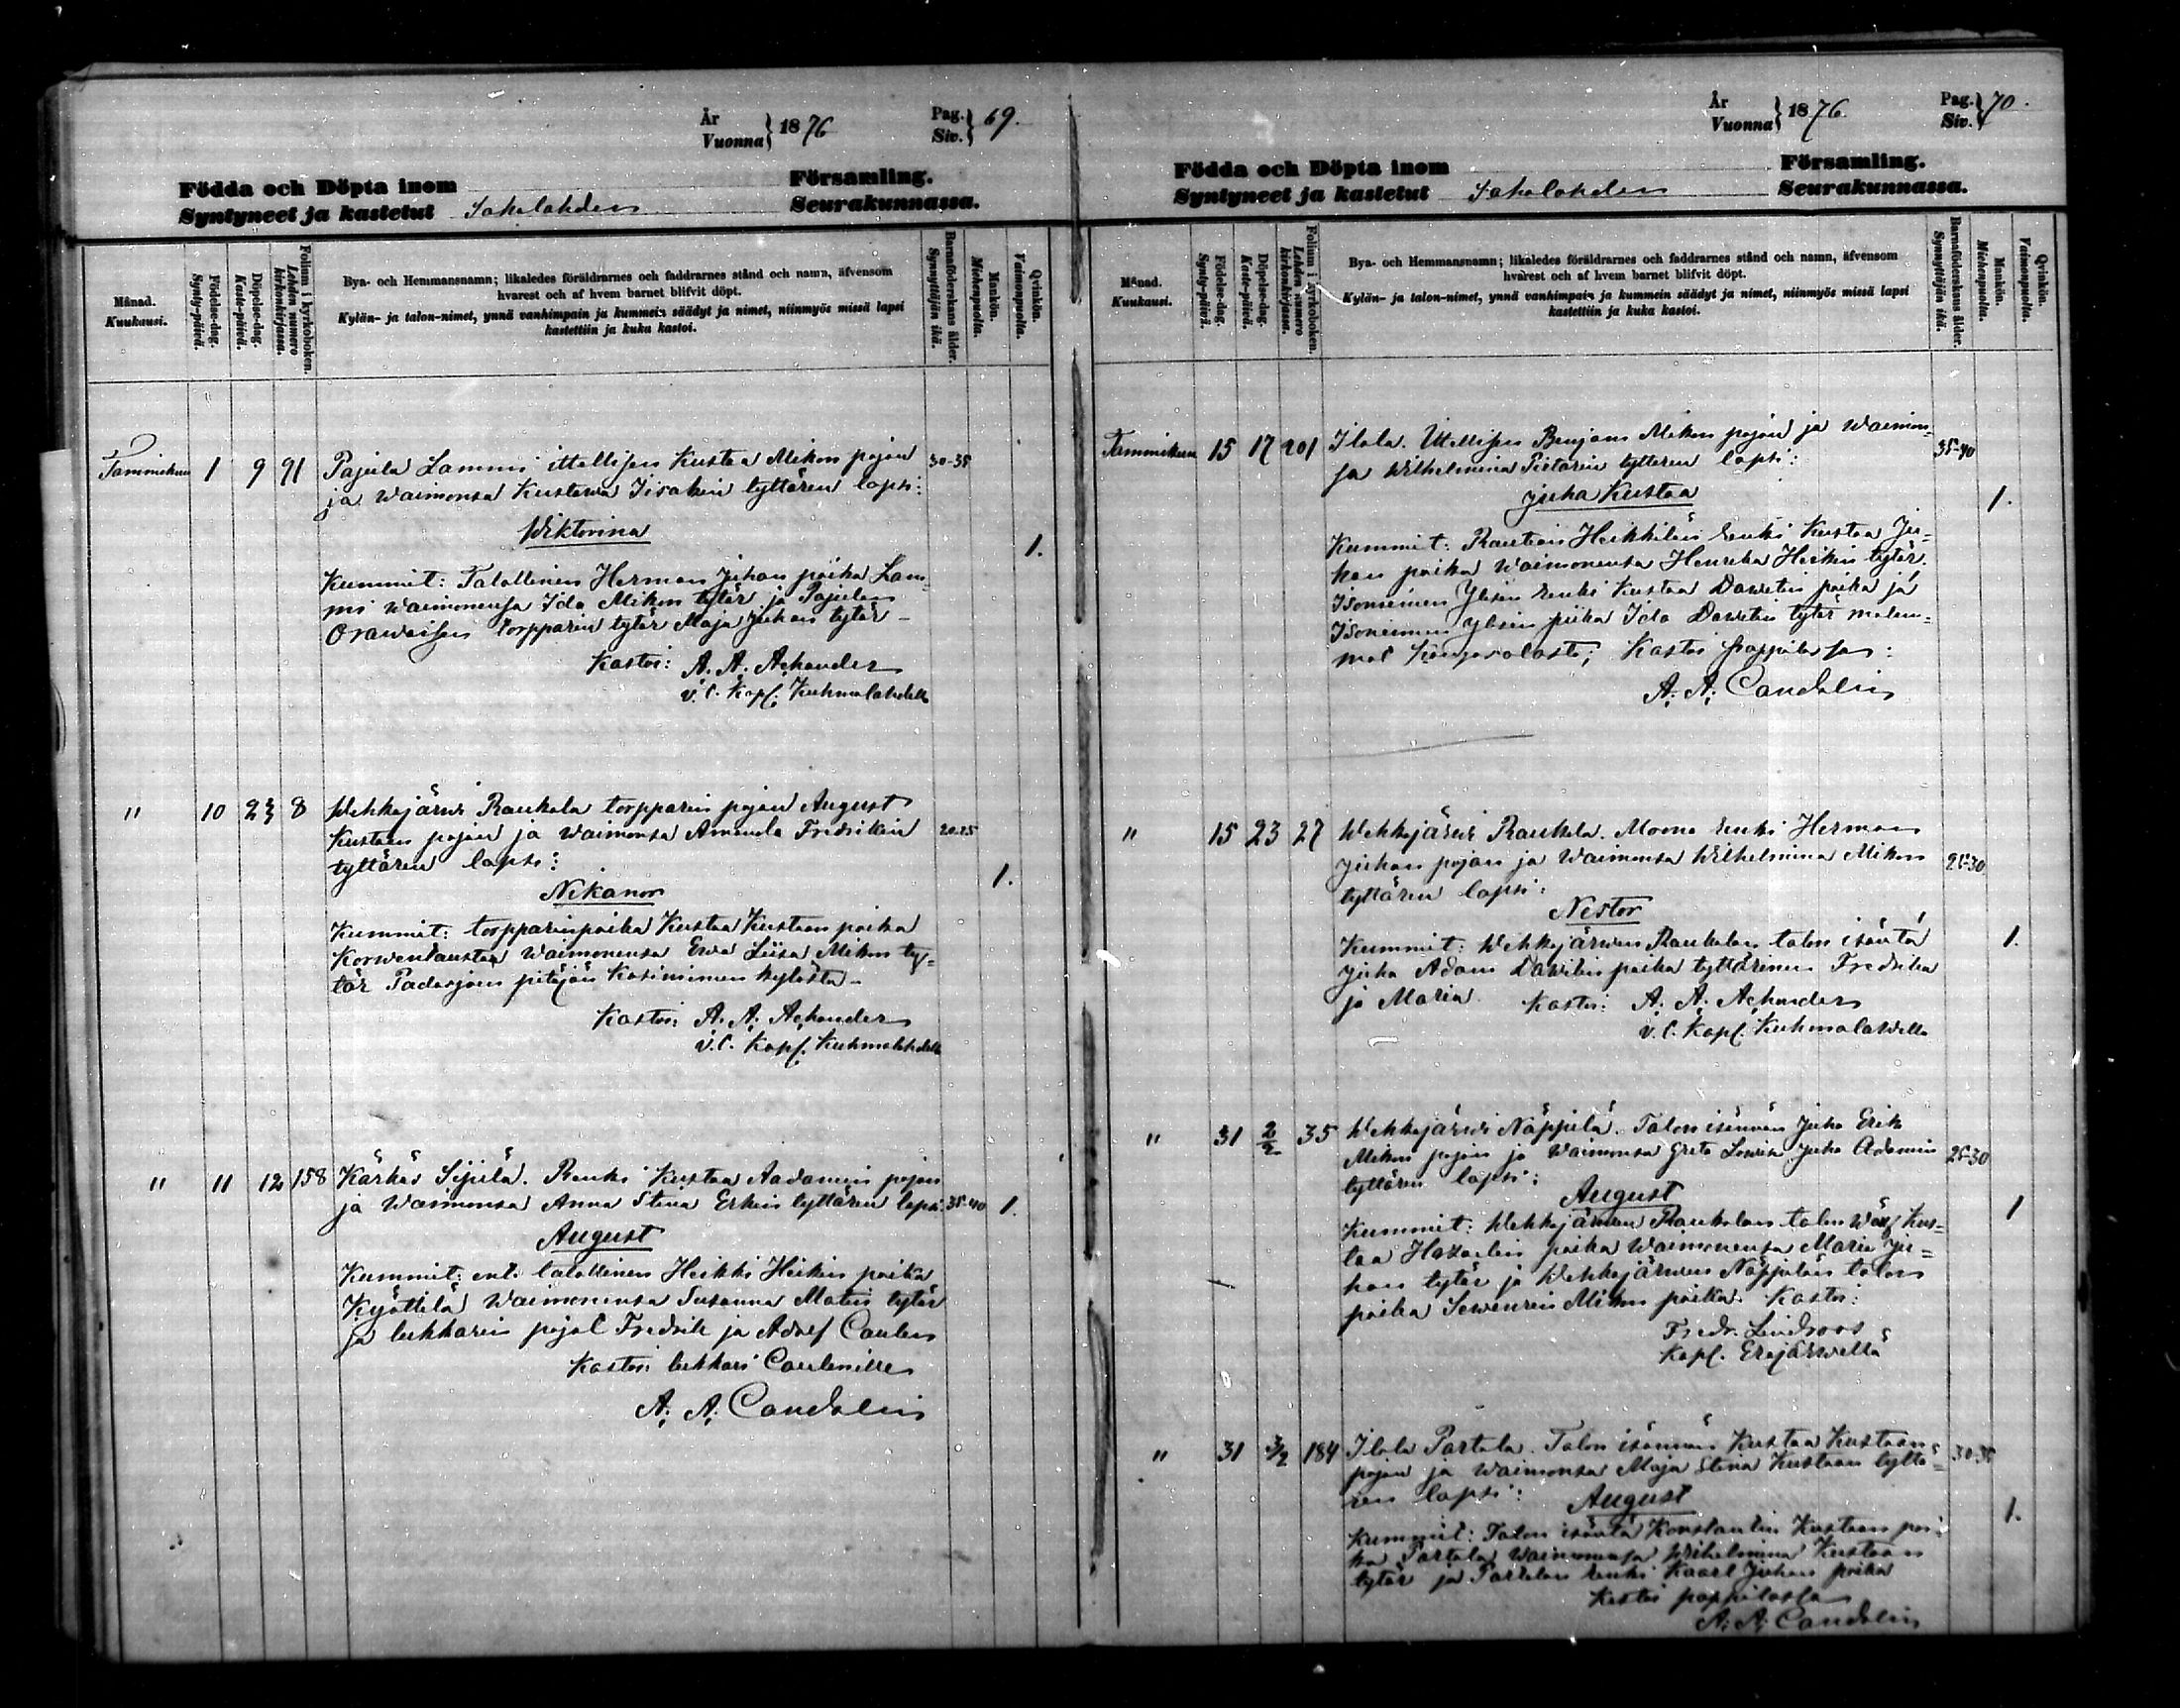 År
Vuonna } 1876
Pag.
Siv. } 69.
Födda och Döpta inom Församling.
Syntyneet ja kastetut Sahalahden Seurakunnassa.
Månad.
Kuukausi.
Födelse-dag.
Synty-päivä.
Döpelse-dag.
Kaste-päivä.
Folium i kyrkoboken.
Lehden numero kirkonkirjassa.
Bya- och Hemmansnamn; likaledes föräldrarnes och faddrarnes stånd och namn, äfvensom
hvarest och af hvem barnet blifvit döpt.
Kylän- ja talon-nimet, ynnä vanhimpain ja kummein säädyt ja nimet, niinmyös missä lapsi
kastettiin ja kuka kastoi.
Barnaföderskans ålder.
Synnyttäjän ikä.
Mankön.
Miehenpuolta.
Qvinkön.
Vaimonpuolta.
Tammikuu 1 9 91 Pajula Lammi ittellisen Kustaa Mikon pojan 30-35
ja Waimonsa Kustawa Iisakin tyttären lapsi:
Wiktorina
1.
Kummit: Talollinen Herman Juhan poika Lam=
mi Waimonensa Ida Mikon tytär ja Pajulan
Orawaisen torpparin tytär Maja Juhan tytär –
Kastoi: A. A. Achander
v. C. Kapl. Kuhmalahdella
" 10 23 8 Wehkajärwi Raukola torpparin pojan August
Kustaan pojan ja Waimonsa Amanda Fredrikin 20-25
tyttären lapsi:
1.
Nikanor
Kummit: torpparinpoika Kustaa Kustaan poika
Korwentausta Waimonensa Ewa Liisa Mikon ty=
tär Padasjoen pitäjän Kasiniemen kylästä –
Kastoi: A. A. Achander
v. C. Kapl. Kuhmalahdella
" 11 12 158 Kärkäs Sipilä. Renki Kustaa Aadamin pojan
ja Waimonsa Anna Stina Erkin tyttären lapsi 35-40 1.
August
Kummit: ent. talollinen Heikki Heikin poika
Kyöttilä Waimonensa Susanna Matin tytär
ja lukkarin pojat Fredrik ja Adolf Caulen
Kastoi lukkari Caulenille
A. A. Candolin
År
Vuonna } 1876.
Pag.
Siv. } 70.
Födda och Döpta inom Församling.
Syntyneet ja kastetut Sahalahden Seurakunnassa.
Månad.
Kuukausi.
Födelse-dag.
Synty-päivä.
Döpelse-dag.
Kaste-päivä.
Folium i kyrkoboken.
Lehden numero kirkonkirjassa.
Bya- och Hemmansnamn; likaledes föräldrarnes och faddrarnes stånd och namn, äfvensom
hvarest och af hvem barnet blifvit döpt.
Kylän- ja talon-nimet, ynnä vanhimpain ja kummein säädyt ja nimet, niinmyös missä lapsi
kastettiin ja kuka kastoi.
Barnaföderskans ålder.
Synnyttäjän ikä.
Mankön.
Miehenpuolta.
Qvinkön.
Vaimonpuolta.
Tammikuu 15 17 201 Ilola. Ittellisen Benjam Mikon pojan ja Waimon= 35-40
sa Wilhelmina Pietarin tyttären lapsi:
Juha Kustaa
1.
Kummit: Rautian Heikkilän renki Kustaa Ju=
han poika Waimonensa Henrika Heikin tytär.
Isoniemen Ylisen renki Kustaa Dawitin poika ja
Isoniemen Ylisen piika Ida Dawitin tytär molem=
mat Kangasalasta; Kastoi pappilassa:
A. A. Candolin
" 15 23 27 Wehkajärwi Raukola. Moona renki Herman
Juhan pojan ja Waimonsa Wilhelmina Mikon 25-30
tyttären lapsi:
Nestor
1.
Kummit: Wehkajärwen Raukolan talon isäntä
Juha Adam Dawitin poika tyttärinen Fredrika
ja Maria. Kastoi: A. A. Achander
v. C. Kapl. Kuhmalahdella
" 31 2/2 35 Wehkajärwi Näppilä. Talon isännän Juho Erik
Mikon pojan ja Waimonsa Greta Lowisa Juha Adamin 25-30
tyttären lapsi:
August
1
Kummit: Wehkajärwen Raukolan talon Kus=
taa poika Waimonensa Maria Ju=
han tytär ja Wehkajärwen Näppilän talon
poika Sewerin Mikon poika. Kastoi:
Fredr. Lindroos
Kapl. Eräjärwellä
" 31 3/2 184 Ilola Partala. Talon isännän Kustaa Kustaan
pojan ja Waimonsa Maja Stina Kustaan tyttä= 30-35
ren lapsi: August
1.
Kummit: Talon isäntä Konstantin Kustaan poi=
ka Partala Waimonensa Wilhelmina Kustaan
tytär ja Partalan renki Kaarl Juhan poika
Kastoi pappilassa
A. A. Candolin